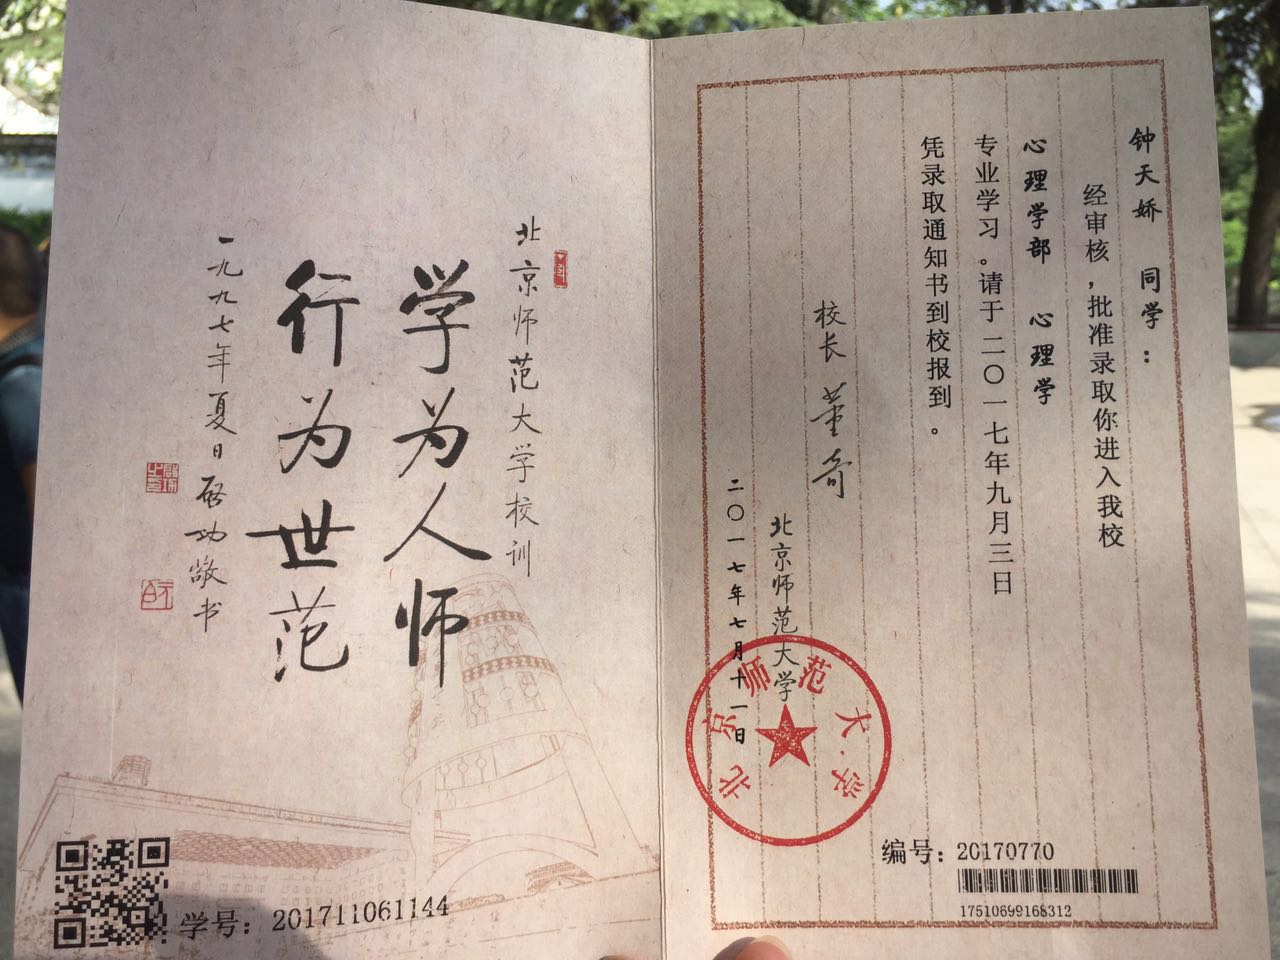 北京师范大学校训
学为人师
行为世范
一九九七年夏日启功敬书
学号：201711061144
钟天娇 同学：
经审核，批准录取你进入我校
心理学部 心理学
专业学习。请于二〇一七年九月三日
凭录取通知书到校报到。
校长 董奇
北京师范大学
二〇一七年七月十一日
北京师范大学
编号：20170770
17510699168312